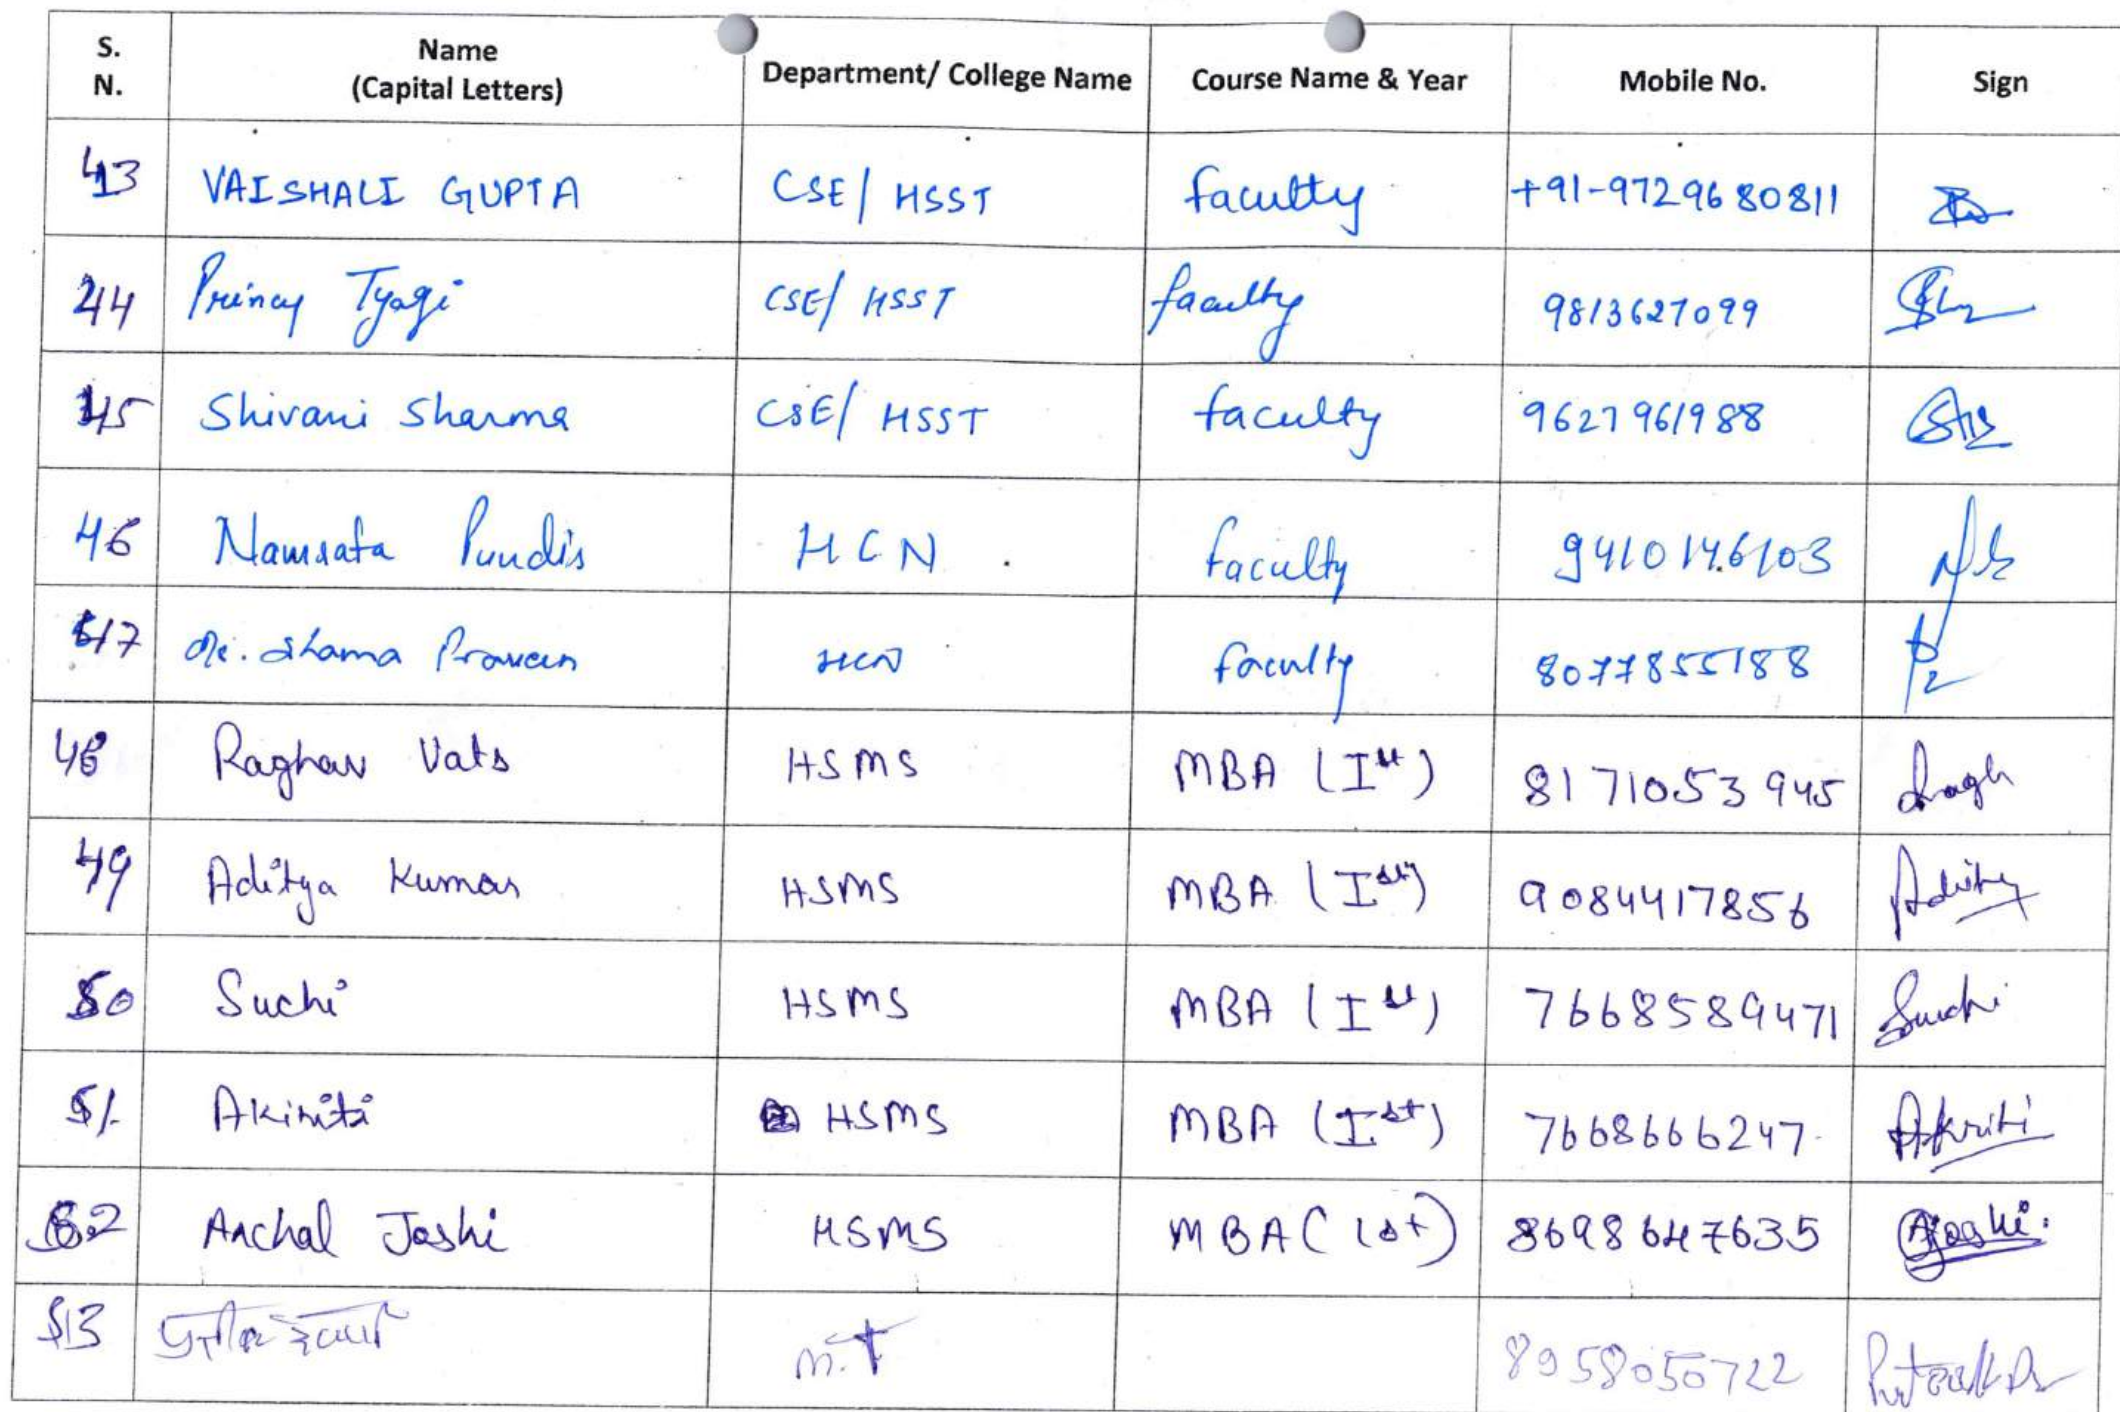 S. N. Name (Capital Letters) Department/ College Name Course Name & Year Mobile No. Sign
43 VAISHALI GUPTA CSE/ HSST faculty +91-9729680811
44 Princy Tyagi CSE/ HSST faculty 9813627099
45 Shivani Sharma CSE/ HSST faculty 9627961988
46 Namrata Pundir HCN faculty 9410146103
47 Shama Praveen HCN faculty 8077855188
48 Raghav Vats HSMS MBA (Ist) 8171053945 Ragh
49 Aditya Kumar HSMS MBA (Ist) 9084417856 Aditya
50 Suchi HSMS MBA (Ist) 7668589471 Suchi
51. Akiriti HSMS MBA (Ist) 7668666247 Akriti
52 Anchal Joshi HSMS MBA (1st) 8698647635 Ajoshi.
53 M.T 8958050722